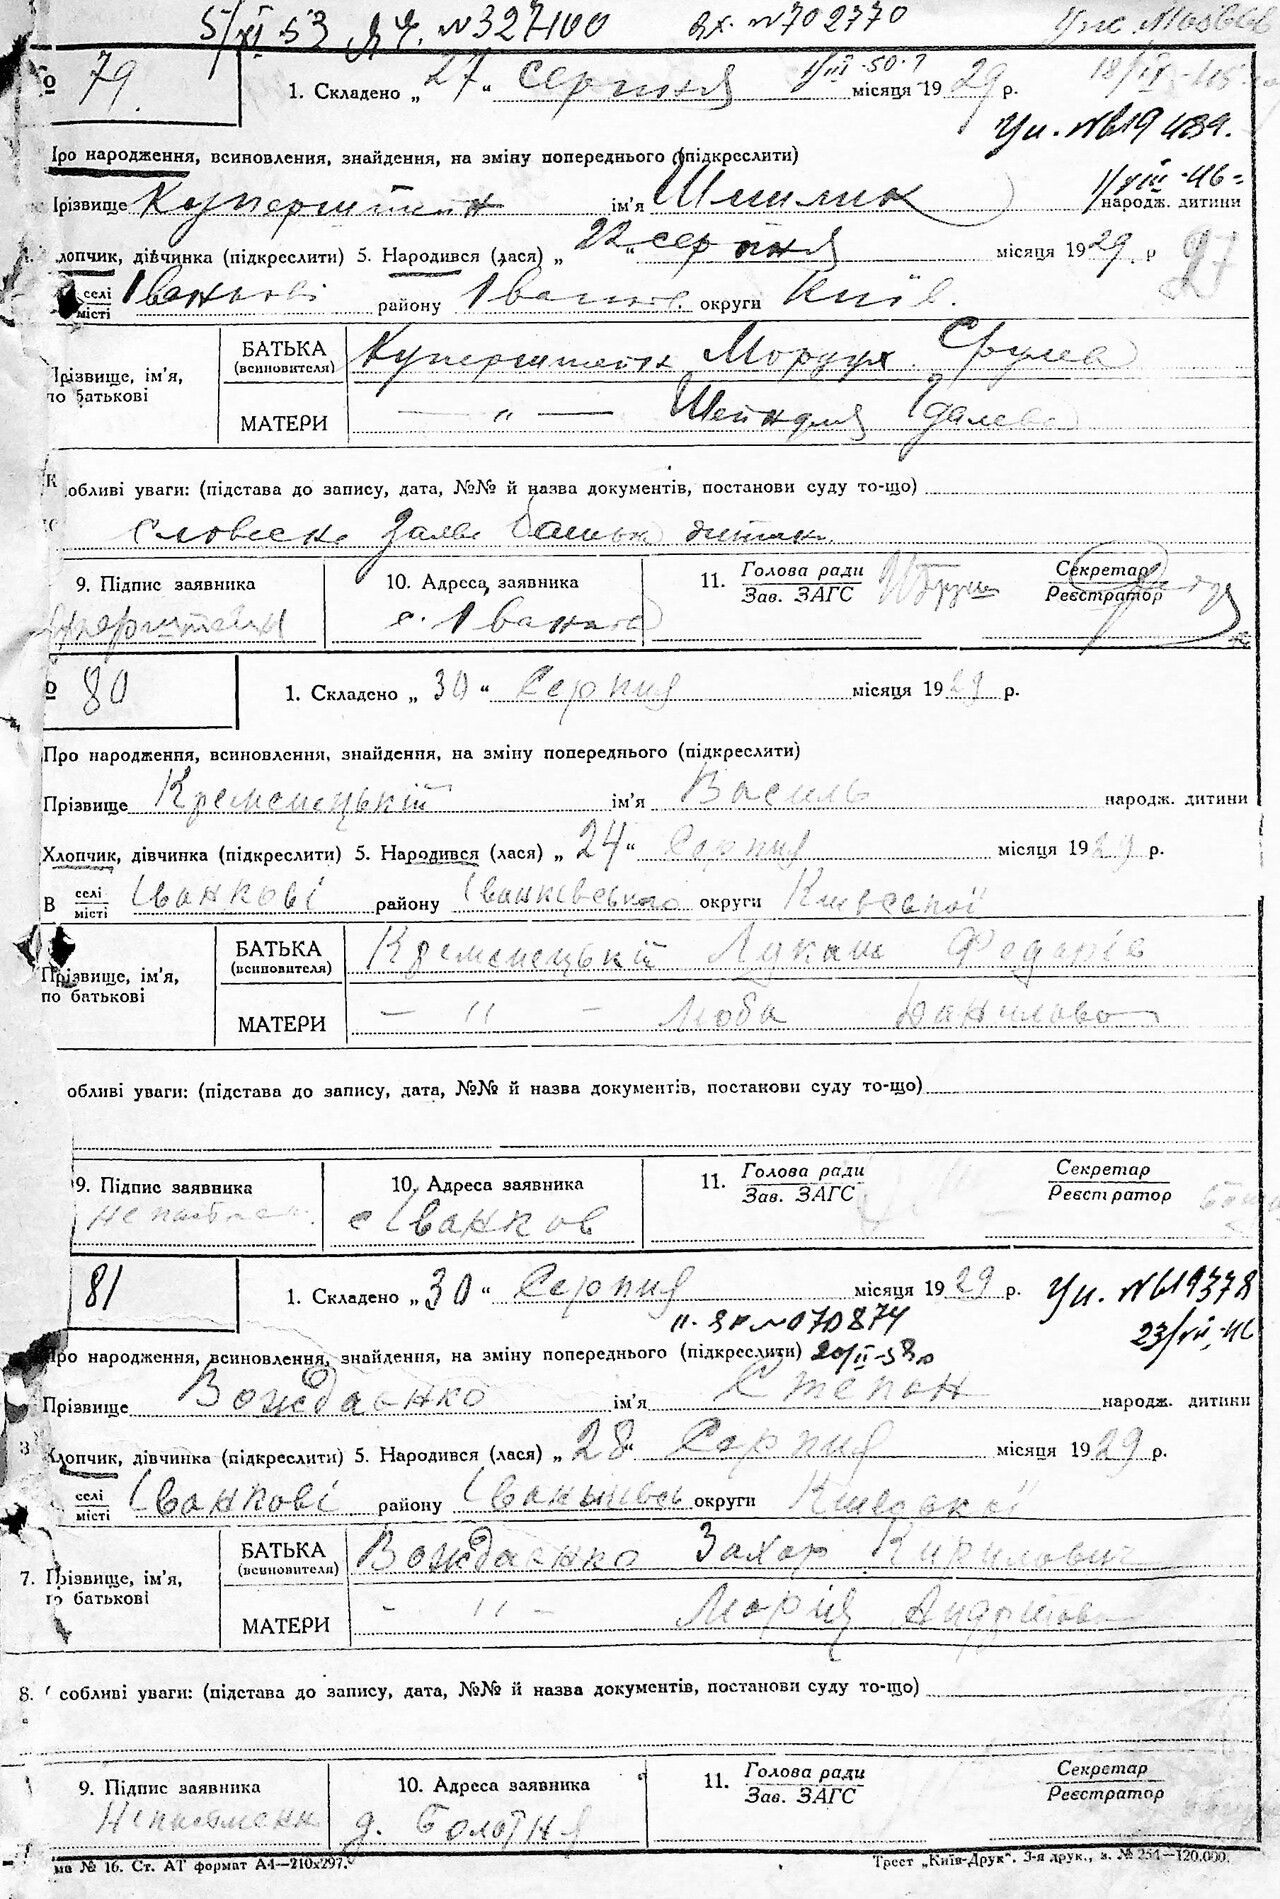 5/XI 53 № 327100 Вх. № 702770
№ 79. 1. Складено „27“ серпня місяця 1929 р.
1/III-50
Уп. №619
Про народження, всиновлення, знайдення, на зміну попереднього (підкреслити)
1/VIII-46
Прізвище Куперштейн ім'я Шмилик народж. дитини
Хлопчик, дівчинка (підкреслити) 5. Народився (лася) „22“ серпня місяця 1929 р
27
селі
місті Іванкові району Іванків. округи Київ.
Прізвище, ім'я,
по батькові
БАТЬКА
(всиновителя) Куперштейн Мордух Срулев
МАТЕРИ — „ — Шейндля
обливі уваги: (підстава до запису, дата, №№ й назва документів, постанови суду то-що)
словесна заява батька дитини
9. Підпис заявника 10. Адреса заявника 11. Голова ради
Зав. ЗАГС Секретар
Реєстратор
Куперштейн с. Іванків
№ 80 1. Складено „30“ Серпня місяця 1929 р.
Про народження, всиновлення, знайдення, на зміну попереднього (підкреслити)
Прізвище Кременецькій ім'я Василь народж. дитини
Хлопчик, дівчинка (підкреслити) 5. Народився (лася) „24“ Серпня місяця 1929 р.
В селі
місті Іванкові району Іванківського округи Київської
Прізвище, ім'я,
по батькові
БАТЬКА
(всиновителя) Кременецькій Лукаш Федорів
МАТЕРИ — „ — Люба Данилова
обливі уваги: (підстава до запису, дата, №№ й назва документів, постанови суду то-що)
9. Підпис заявника 10. Адреса заявника 11. Голова ради
Зав. ЗАГС Секретар
Реєстратор
Неписьмен. с Іванков
81 1. Складено „30“ Серпня місяця 1929 р.
Уп. №619378
23/VII-46
П. ЯР № 070874
Про народження, всиновлення, знайдення, на зміну попереднього (підкреслити) 20/II-58
Прізвище Вождаенко ім'я Степан народж. дитини
Хлопчик, дівчинка (підкреслити) 5. Народився (лася) „28“ Серпня місяця 1929 р.
селі
місті Іванкові району округи Київської
7. Прізвище, ім'я,
по батькові
БАТЬКА
(всиновителя) Вождаенко Захар Кирилович
МАТЕРИ — „ — Марія Андріївна
8. собливі уваги: (підстава до запису, дата, №№ й назва документів, постанови суду то-що)
9. Підпис заявника 10. Адреса заявника 11. Голова ради
Зав. ЗАГС Секретар
Реєстратор
Неписьменн. д. Болотня
ма № 16. Ст. АТ формат А4—210х297. Трест „Київ-Друк“. 3-я друк., з. № 254—120.000.